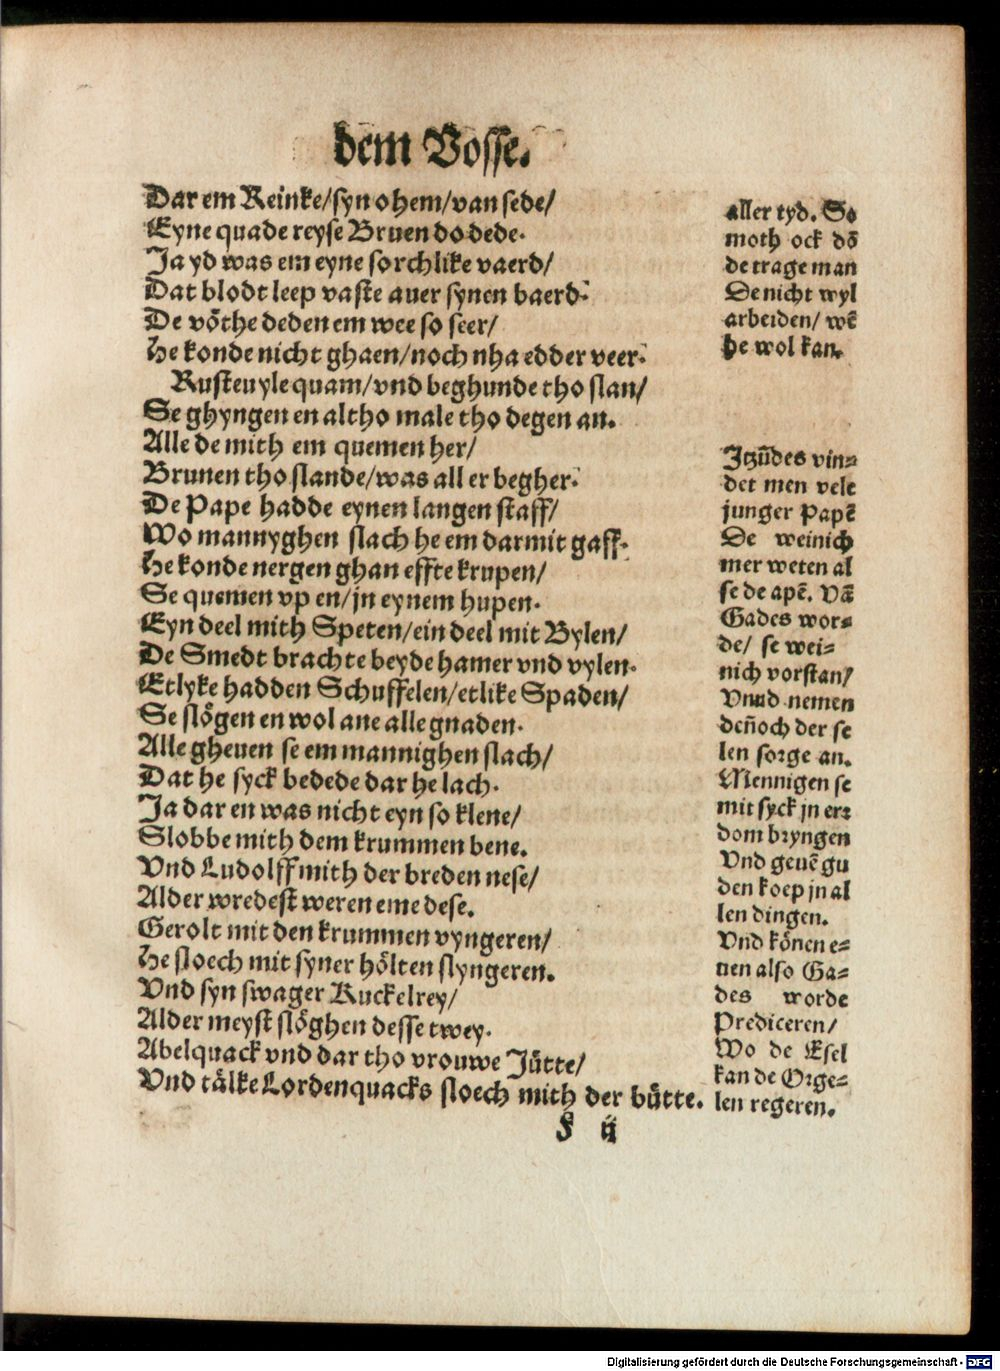 dem Vosse.
Dar em Reinke/syn ohem/van sede/
Eyne quade reyse Bruen do dede.
Ja yd was em eyne sorchlike vaerd/
Dat blodt leep vaste auer synen baerd.
De vöthe deden em wee so seer/
He konde nicht ghaen/noch nha edder veer.
Rusteuyle quam/vnd beghunde tho slan/
Se ghyngen en altho male tho degen an.
Alle de mith em quemen her/
Brunen tho slande/was all er begher.
De Pape hadde eynen langen staff/
Wo mannyghen slach he em darmit gaff.
He konde nergen ghan effte krupen/
Se quemen vp en/jn eynem hupen.
Eyn deel mith Speten/ein deel mit Bylen/
De Smedt brachte beyde hamer vnd vylen.
Etlyke hadden Schuffelen/etlike Spaden/
Se slögen en wol ane alle gnaden.
Alle gheuen se em mannighen slach/
Dat he syck bedede dar he lach.
Ja dar en was nicht eyn so klene/
Slobbe mith dem krummen bene.
Vnd Ludolff mith der breden nese/
Alder wredest weren eme dese.
Gerolt mit den krummen vyngeren/
He sloech mit syner hölten slyngeren.
Vnd syn swager Kuckelrey/
Alder meyst slöghen desse twey.
Abelquack vnd dar tho vrouwe Jütte/
Vnd tälke Lordenquacks sloech mith der bütte.
aller tyd. So
moth ock dō
de trage man
De nicht wyl
arbeiden/ wē
he wol kan.
Jtzūdes vin=
det men vele
junger Papē
De weinich
mer weten al
se de apē. Vā
Gades wor=
de/ se wei=
nich vorstan/
Vnnd nemen
den̄och der se
len sorge an.
Mennigen se
mit syck jn er=
dom bryngen
Vnd geuē gu
den koep jn al
len dingen.
Vnd könen e=
uen also Ga=
des worde
Prediceren/
Wo de Esel
kan de Orge=
len regeren.
F ij
Digitalisierung gefördert durch die Deutsche Forschungsgemeinschaft - DFG